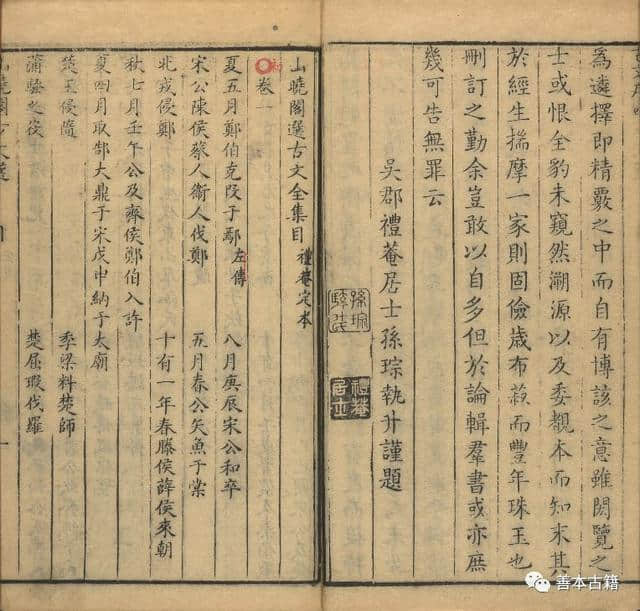 為遴擇即精覈之中而自有博該之意雖閎覽之
士或恨全豹未窺然溯源以及委覩本而知末其
於經生揣摩一家則固儉歲布菽而豐年珠玉也
刪訂之勤余豈敢以自多但於論輯羣書或亦庶
幾可告無罪云
吳郡禮菴居士孫琮執升謹題
孫琮
禮菴居士
山曉閣選古文全集目 禮菴定本
卷一
夏五月鄭伯克段于鄢 左傳 八月庚辰宋公和卒
宋公陳侯蔡人衛人伐鄭 五月春公矢魚于棠
北戎侵鄭 十有一年春滕侯薛侯來朝
秋七月壬午公及齊侯鄭伯入許
夏四月取郜大鼎于宋戊申納于太廟
楚王侵隨 季梁料楚師
蒲騷之役 楚屈瑕伐羅
山曉閣古文選 目 一
善本古籍